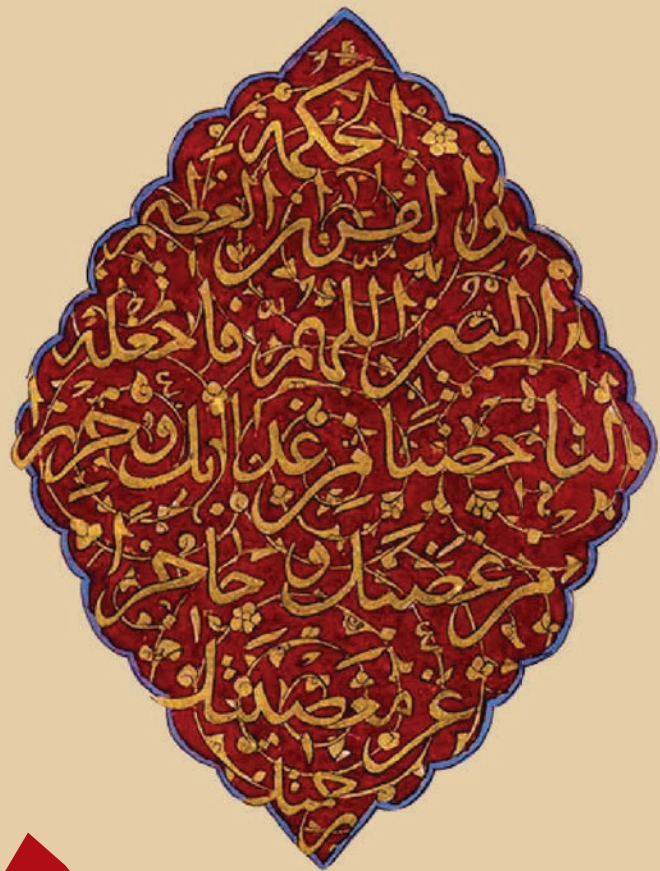 الحكمة
والقرآن العظيم
المبين اللهم فاجعله
لنا حصنا من عذابك وحرزا
من غضبك وحاجزا
عن معصيتك